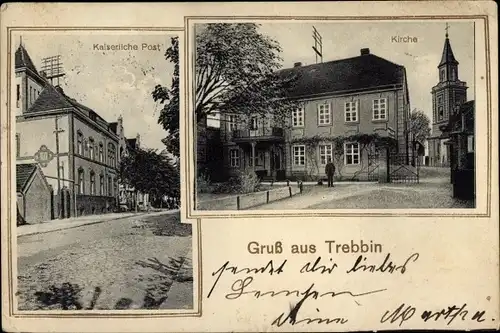 Kaiserliche Post
Kirche
Gruß aus Trebbin
sendet dir liebes
deine Martha